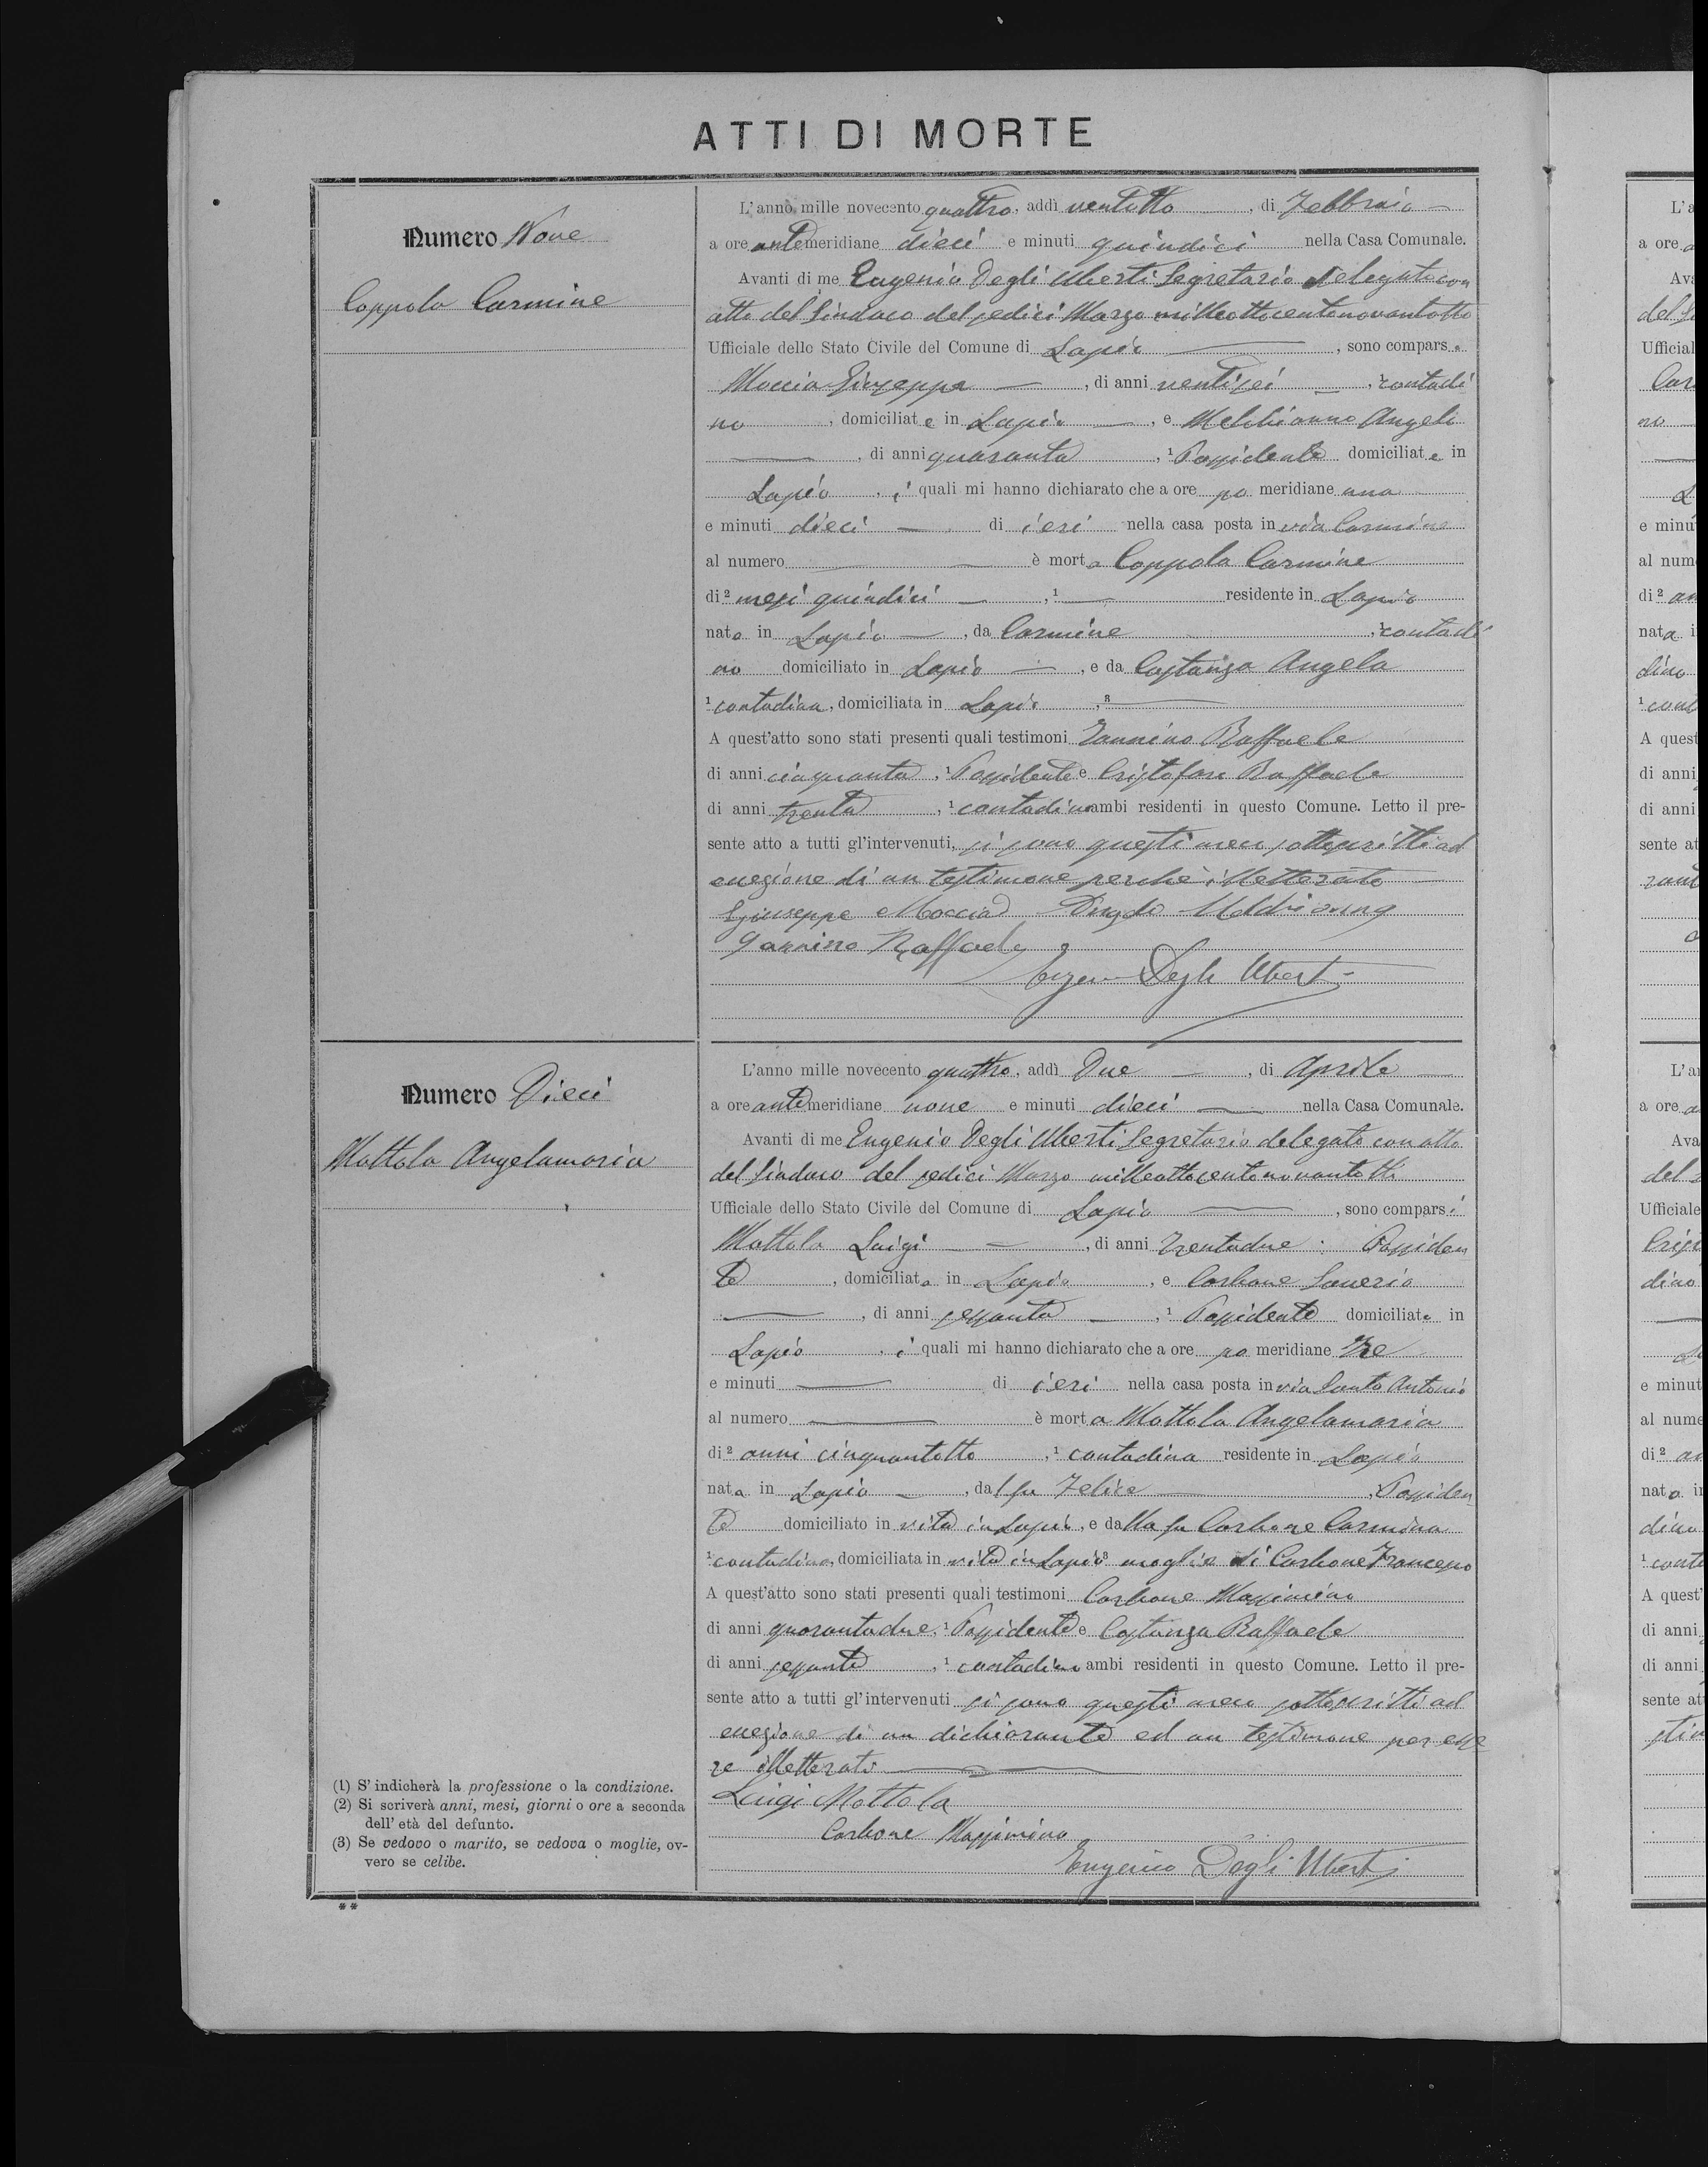 ATTI DI MORTE
Numero Nove
Coppola Carmine
L'anno mille novecento quattro, addì ventotto, di Febbraio
a ore antimeridiane dieci e minuti quindici nella Casa Comunale.
Avanti di me Eugenio Degli Uberti Segretario delegato con
atto del Sindaco del sedici Marzo milleottocentonovantotto
Ufficiale dello Stato Civile del Comune di Lapio, sono compars
Moccia Giuseppe, di anni ventisei, ¹ contadi
no, domiciliate in Lapio, e Melchionno Angelo
, di anni quaranta, ¹ Possidente domiciliate in
Lapio, i quali mi hanno dichiarato che a ore po meridiane una
e minuti dieci di ieri nella casa posta in via Carmine
al numero è morto Coppola Carmine
di ² mesi quindici, ¹ residente in Lapio
nato in Lapio, da Carmine, ¹ contadi
no domiciliato in Lapio, e da Costanza Angela
¹ contadina, domiciliata in Lapio, ³
A quest'atto sono stati presenti quali testimoni Iannino Raffaele
di anni cinquanta, ¹ Possidente e Cristofaro Raffaele
di anni trenta, ¹ contadino ambi residenti in questo Comune. Letto il pre-
sente atto a tutti gl'intervenuti, si sono questi meco sottoscritti ad
eccezione di un testimone perchè illetterato
Giuseppe Moccia Angelo
Iannino Raffaele
Eugenio Degli Uberti
Numero Dieci
Mottola Angelamaria
L'anno mille novecento quattro, addì Due, di Aprile
a ore antimeridiane nove e minuti dieci nella Casa Comunale.
Avanti di me Eugenio Degli Uberti Segretario delegato con atto
del Sindaco del sedici Marzo milleottocentonovantotto
Ufficiale dello Stato Civile del Comune di Lapio, sono comparsi
Mottola Luigi, di anni Trentadue Possiden
te, domiciliato in Lapio, e Carbone Saverio
, di anni sessanta, ¹ Possidente domiciliato in
Lapio, i quali mi hanno dichiarato che a ore po meridiane Tre
e minuti di ieri nella casa posta in via Santo Antonio
al numero è morta Mottola Angelamaria
di ² anni cinquantotto, ¹ contadina residente in Lapio
nata in Lapio, dal fu Felice, Possiden
te domiciliato in vita in Lapio, e dalla fu Carbone Carmina
¹ contadina, domiciliata in vita in Lapio ³ moglie di Carbone Francesco
A quest'atto sono stati presenti quali testimoni Carbone Massimino
di anni quarantadue, ¹ Possidente e Costanza Raffaele
di anni sessanta, ¹ contadino ambi residenti in questo Comune. Letto il pre-
sente atto a tutti gl'intervenuti si sono questi meco sottoscritti ad
eccezione di un dichiarante ed un testimone per esse
re illetterati
Luigi Mottola
Carbone Massimino
Eugenio Degli Uberti
(1) S'indicherà la professione o la condizione.
(2) Si scriverà anni, mesi, giorni o ore a seconda
dell'età del defunto.
(3) Se vedovo o marito, se vedova o moglie, ov-
vero se celibe.
**